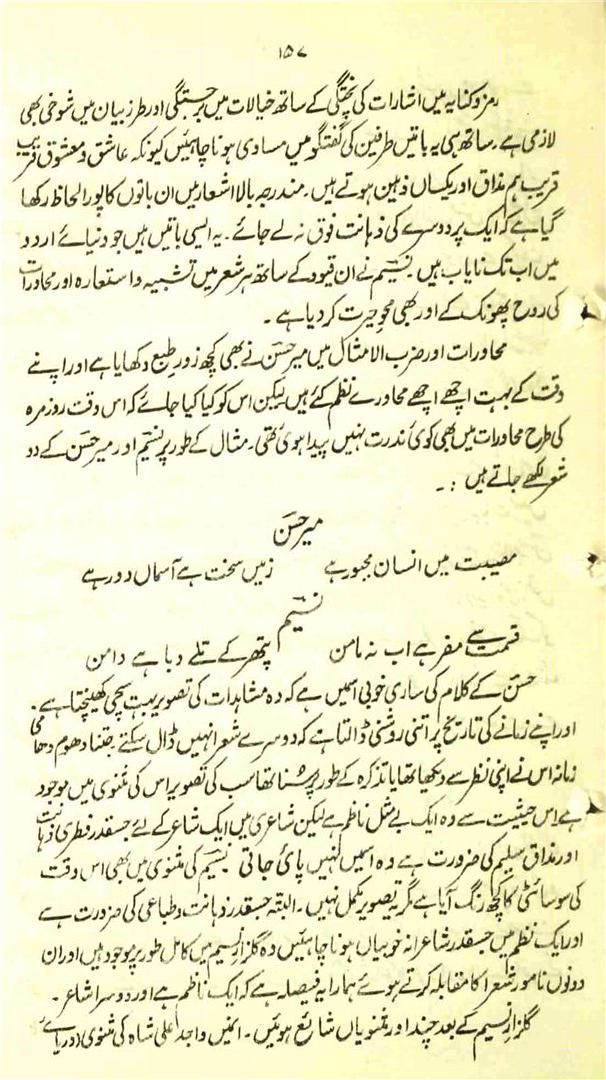 ۱۵۷
رمز و کنایہ میں اشارات کی پختگی کے ساتھ خیالات میں برجستگی اور طرز بیان میں شوخی بھی
لازمی ہے۔ ساتھ ہی یہ باتیں طرفین کی گفتگو میں مساوی ہونا چاہئیں کیونکہ عاشق و معشوق قریب
قریب ہم مذاق اور یکساں ذہین ہوتے ہیں۔ مندرجہ بالا اشعار میں ان باتوں کا پورا لحاظ رکھا
گیا ہے کہ ایک پر دوسرے کی ذہانت فوق نہ لے جائے۔ یہ ایسی باتیں ہیں جو دنیائے اردو
میں اب تک نایاب ہیں۔ نسیم نے ان قیود کے ساتھ ہر شعر میں تشبیہ و استعارہ اور محاورات
کی روح پھونک کے اور بھی محوِ حیرت کر دیا ہے۔
محاورات اور ضرب الامثال میں میر حسن نے بھی کچھ زورِ طبع دکھایا ہے اور اپنے
وقت کے بہت اچھے اچھے محاورے نظم کئے ہیں لیکن اس کو کیا کیا جائے کہ اس وقت روزمرہ
کی طرح محاورات میں بھی کوئی ندرت نہیں پیدا ہوئی تھی۔ مثال کے طور پر نسیم اور میر حسن کے دو
شعر لکھے جاتے ہیں :۔
میر حسن
مصیبت میں انسان مجبور ہے زمیں سخت ہے آسماں دور ہے
نسیم
قسمت سے مفر ہے اب نہ مامن پتھر کے تلے دبا ہے دامن
حسن کے کلام کی ساری خوبی اسمیں ہے کہ وہ مشاہدات کی تصویر بہت سچی کھینچتا ہے۔
اور اپنے زمانے کی تاریخ پر اتنی روشنی ڈالتا ہے کہ دوسرے شعرا نہیں ڈال سکتے۔ جتنا دھوم دھامی
زمانہ اس نے اپنی نظر سے دیکھا تھا یا تذکرہ کے طور پر سُنا تھا سب کی تصویر اس کی مثنوی میں موجود
ہے اس حیثیت سے وہ ایک بے مثل ناظم ہے لیکن شاعری میں ایک شاعر کے لئے جسقدر فطری ذہانت
اور مذاق سلیم کی ضرورت ہے وہ اسمیں نہیں پائی جاتی نسیم کی مثنوی میں بھی اس وقت
کی سوسائٹی کا کچھ رنگ آیا ہے مگر یہ تصویر مکمل نہیں۔ البتہ جسقدر ذہانت و طباعی کی ضرورت ہے
اور ایک نظم میں جسقدر شاعرانہ خوبیاں ہونا چاہئیں وہ گلزارِ نسیم میں کامل طور پر موجود ہیں اور ان
دونوں نامور شعرا کا مقابلہ کرتے ہوئے ہمارا یہ فیصلہ ہے کہ ایک ناظم ہے اور دوسرا شاعر۔
گلزارِ نسیم کے بعد چند اور مثنویاں شایع ہوئیں۔ انمیں واجد علی شاہ کی مثنوی (دریائے